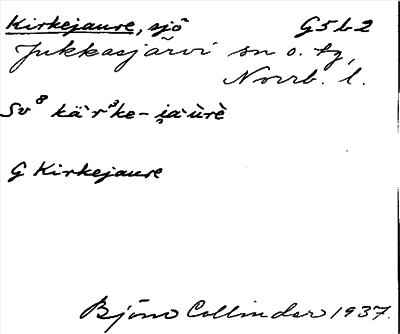 Kirkejaure, sjö G5b2
Jukkasjärvi sn o. tg,
Norrb. l.
Sv⁸ kä`r³ke-i̯a`ùrè
G Kirkejaure
Björn Collinder 1937.